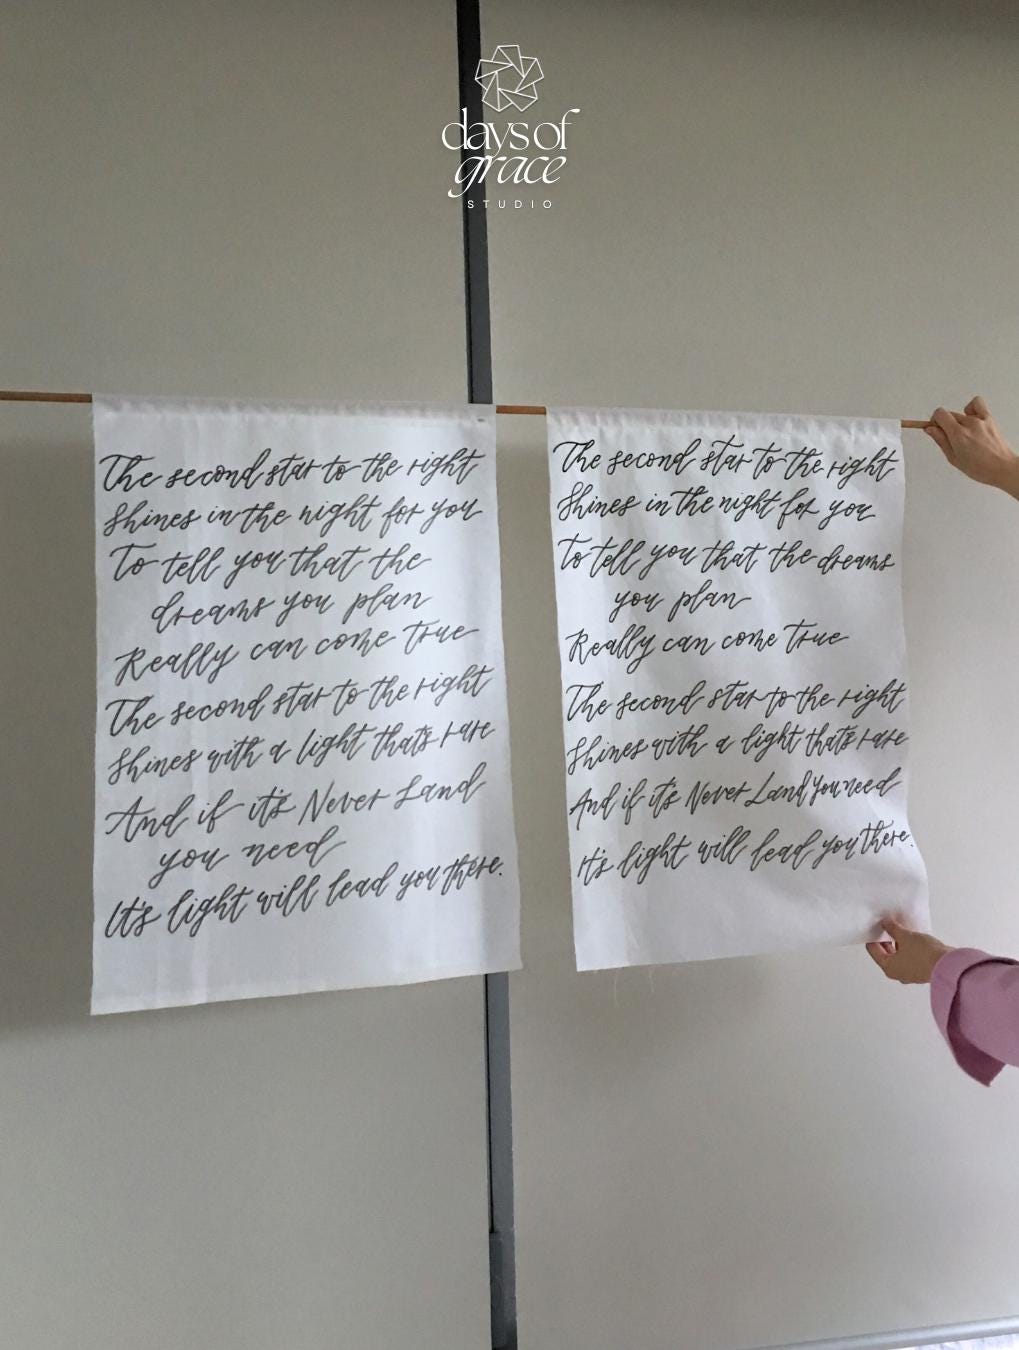 days of
grace
STUDIO
The second star to the right
Shines in the night for you
To tell you that the
dreams you plan
Really can come true
The second star to the right
Shines with a light that's rare
And if it's Never Land
you need
It's light will lead you there.
The second star to the right
Shines in the night for you
To tell you that the dreams
you plan
Really can come true
The second star to the right
Shines with a light that's rare
And if it's Never Land you need
It's light will lead you there.